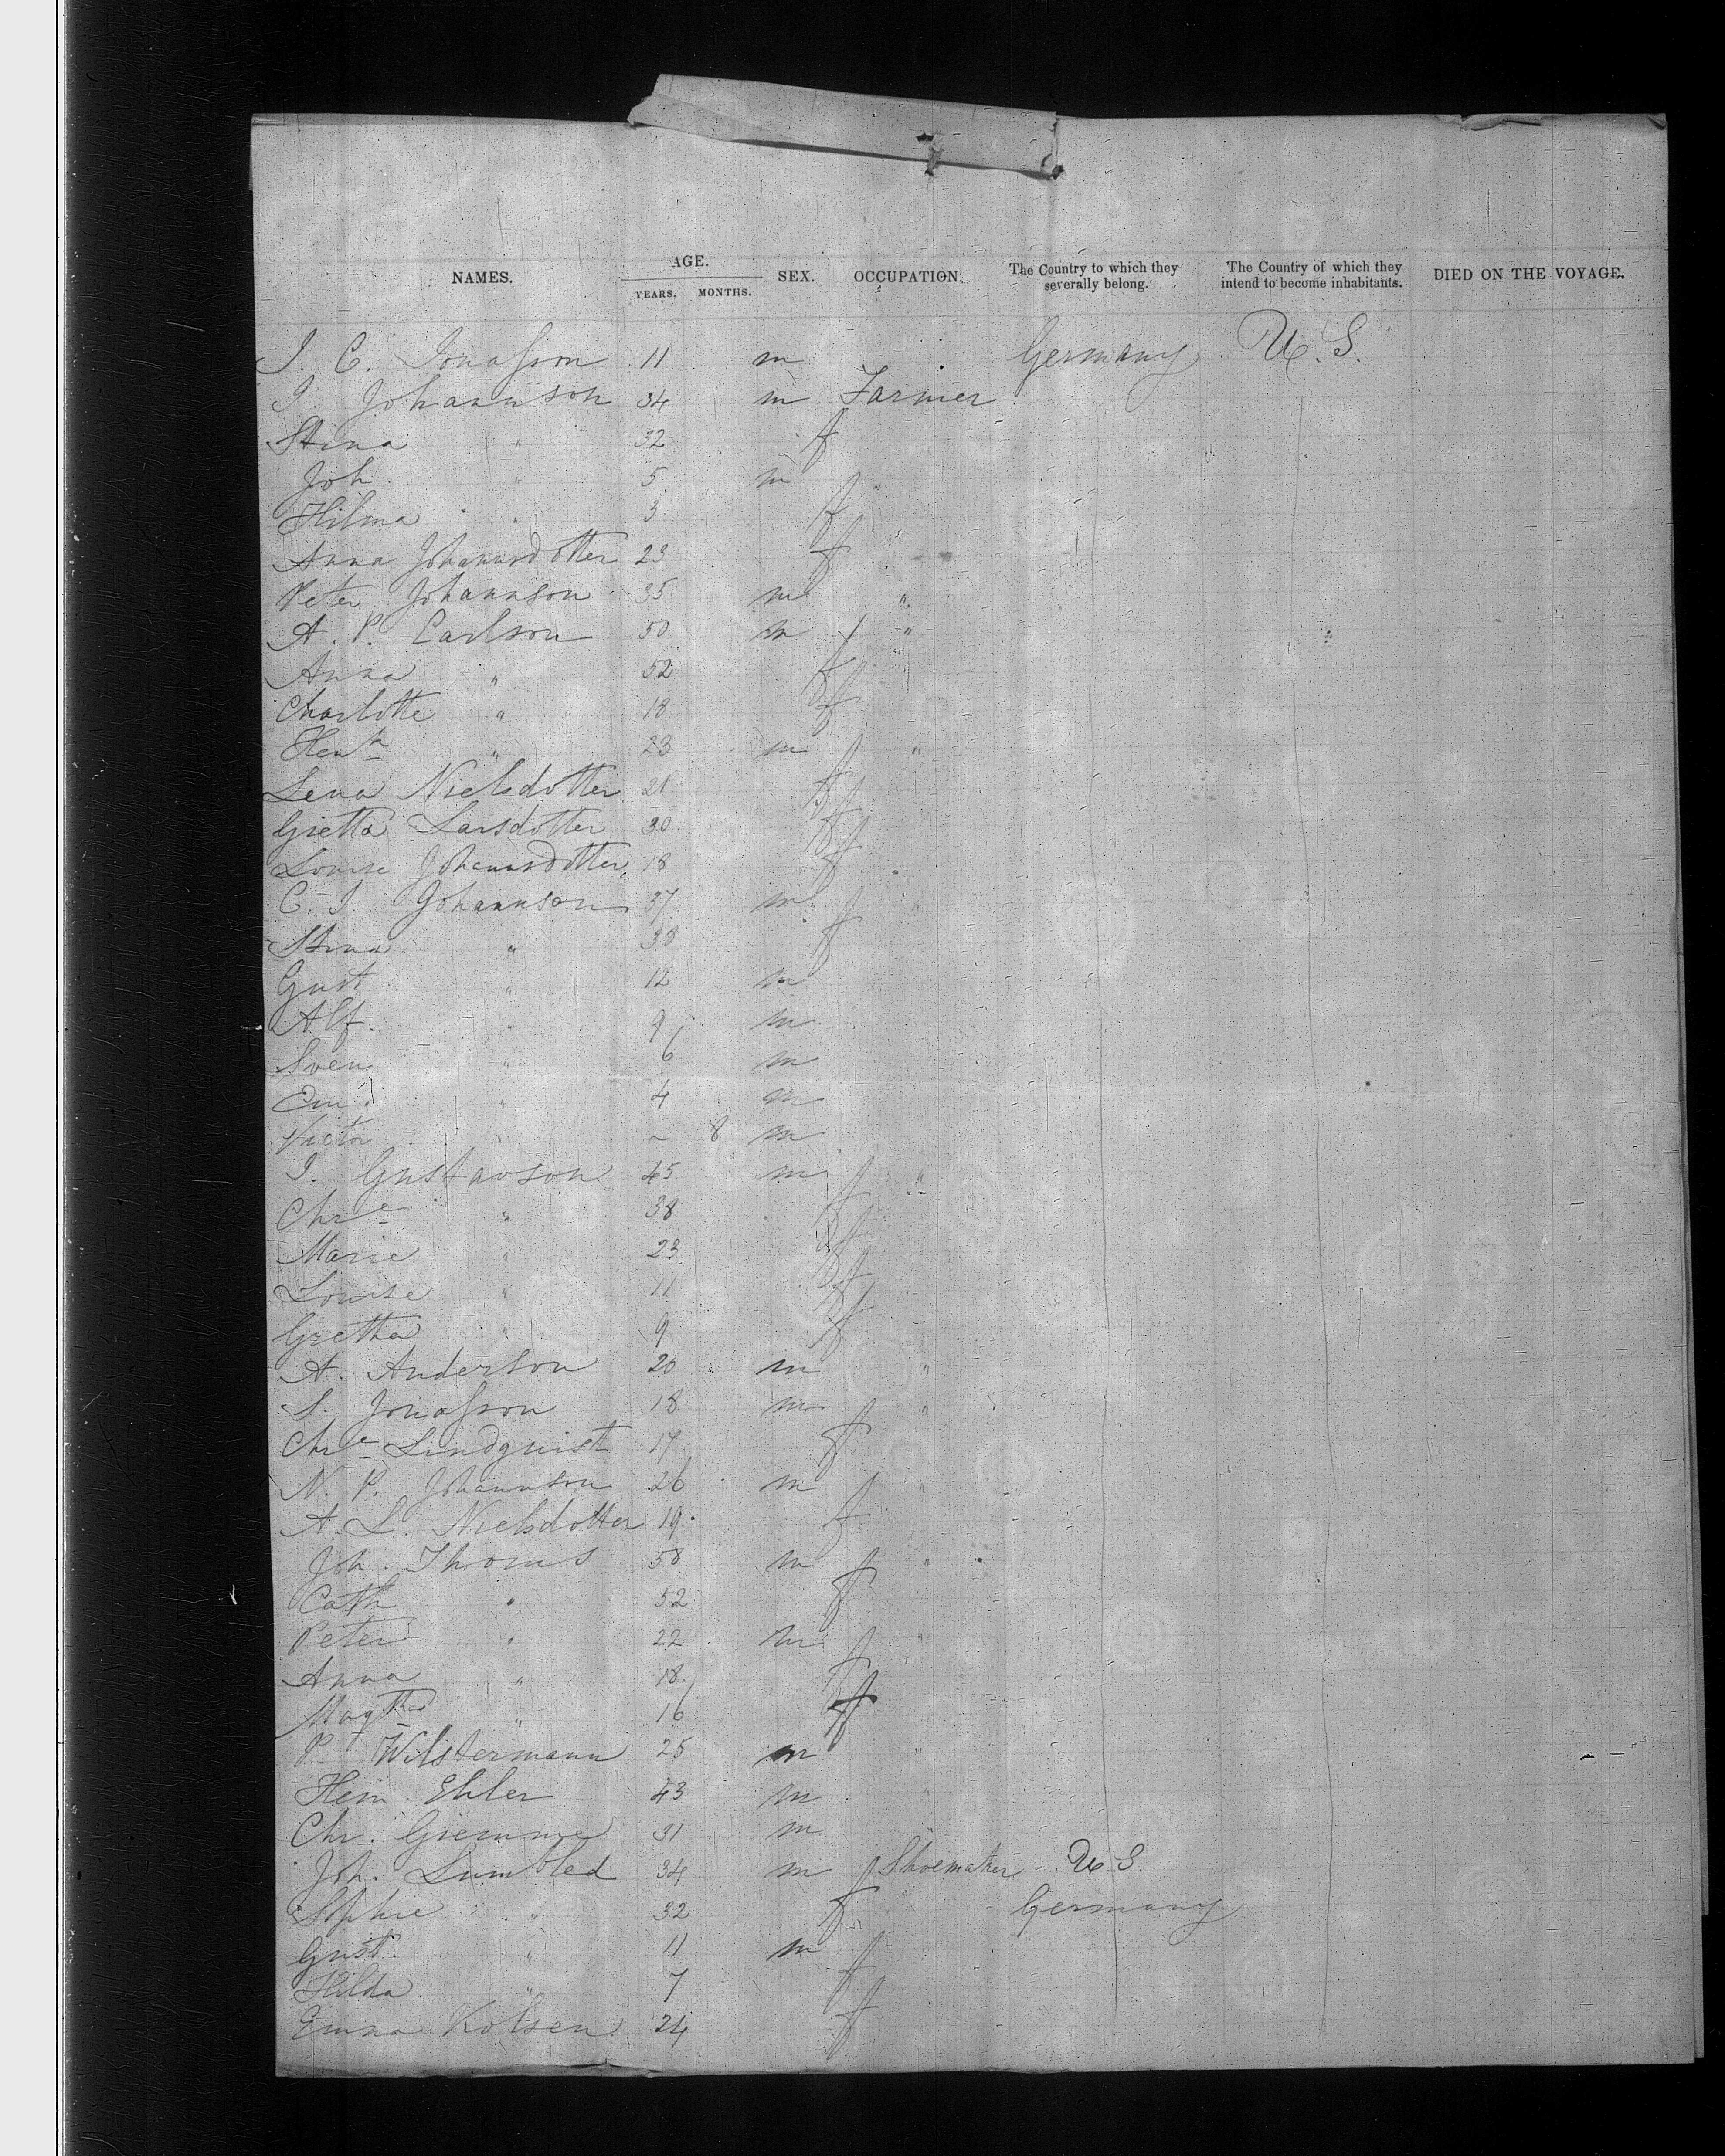 NAMES. AGE. YEARS. MONTHS. SEX. OCCUPATION. The Country to which they severally belong. The Country of which they intend to become inhabitants. DIED ON THE VOYAGE.
J. C. Jonasson 11 m Germany U.S.
J. Johannson 34 m Farmer
Stina " 32 f
Joh. " 5 m
Hilma " 3 f
Anna Johannsdotter 23 f
Peter Johannson 35 m "
A. P. Carlson 50 m "
Anna " 52 f
Charlotte " 18 f
Henr " 23 m "
Lena Nielsdotter 21 f
Gretta Larsdotter 30 f
Louise Johannsdotter 18 f
C. J. Johannson 37 m "
Stina " 38 f
Gust " 12 m
Alf. " 9 m
Sven " 6 m
Em. " 4 m
Victor " ~ 8 m
J. Gustavson 45 m "
Chre " 38 f
Marie " 23 f
Louise " 11 f
Gretha " 9 f
A. Anderson 20 m "
S. Jonasson 18 m "
Chre Lindquist 17 f
N. P. Johannson 26 m "
A. L. Nielsdotter 19 f
Joh. Thoms 58 m "
Cath " 52 f
Peter " 22 m "
Anna " 18 f
Magtha " 16 f
P. Wilstermann 25 m "
Hein Ehler 43 m "
Chr. Giemme 31 m
Joh. Lumbled 34 m Shoemaker U.S.
Sophie " 32 f Germany
Gust. " 11 m
Hilda " 7 f
Emma Kolsen 24 f